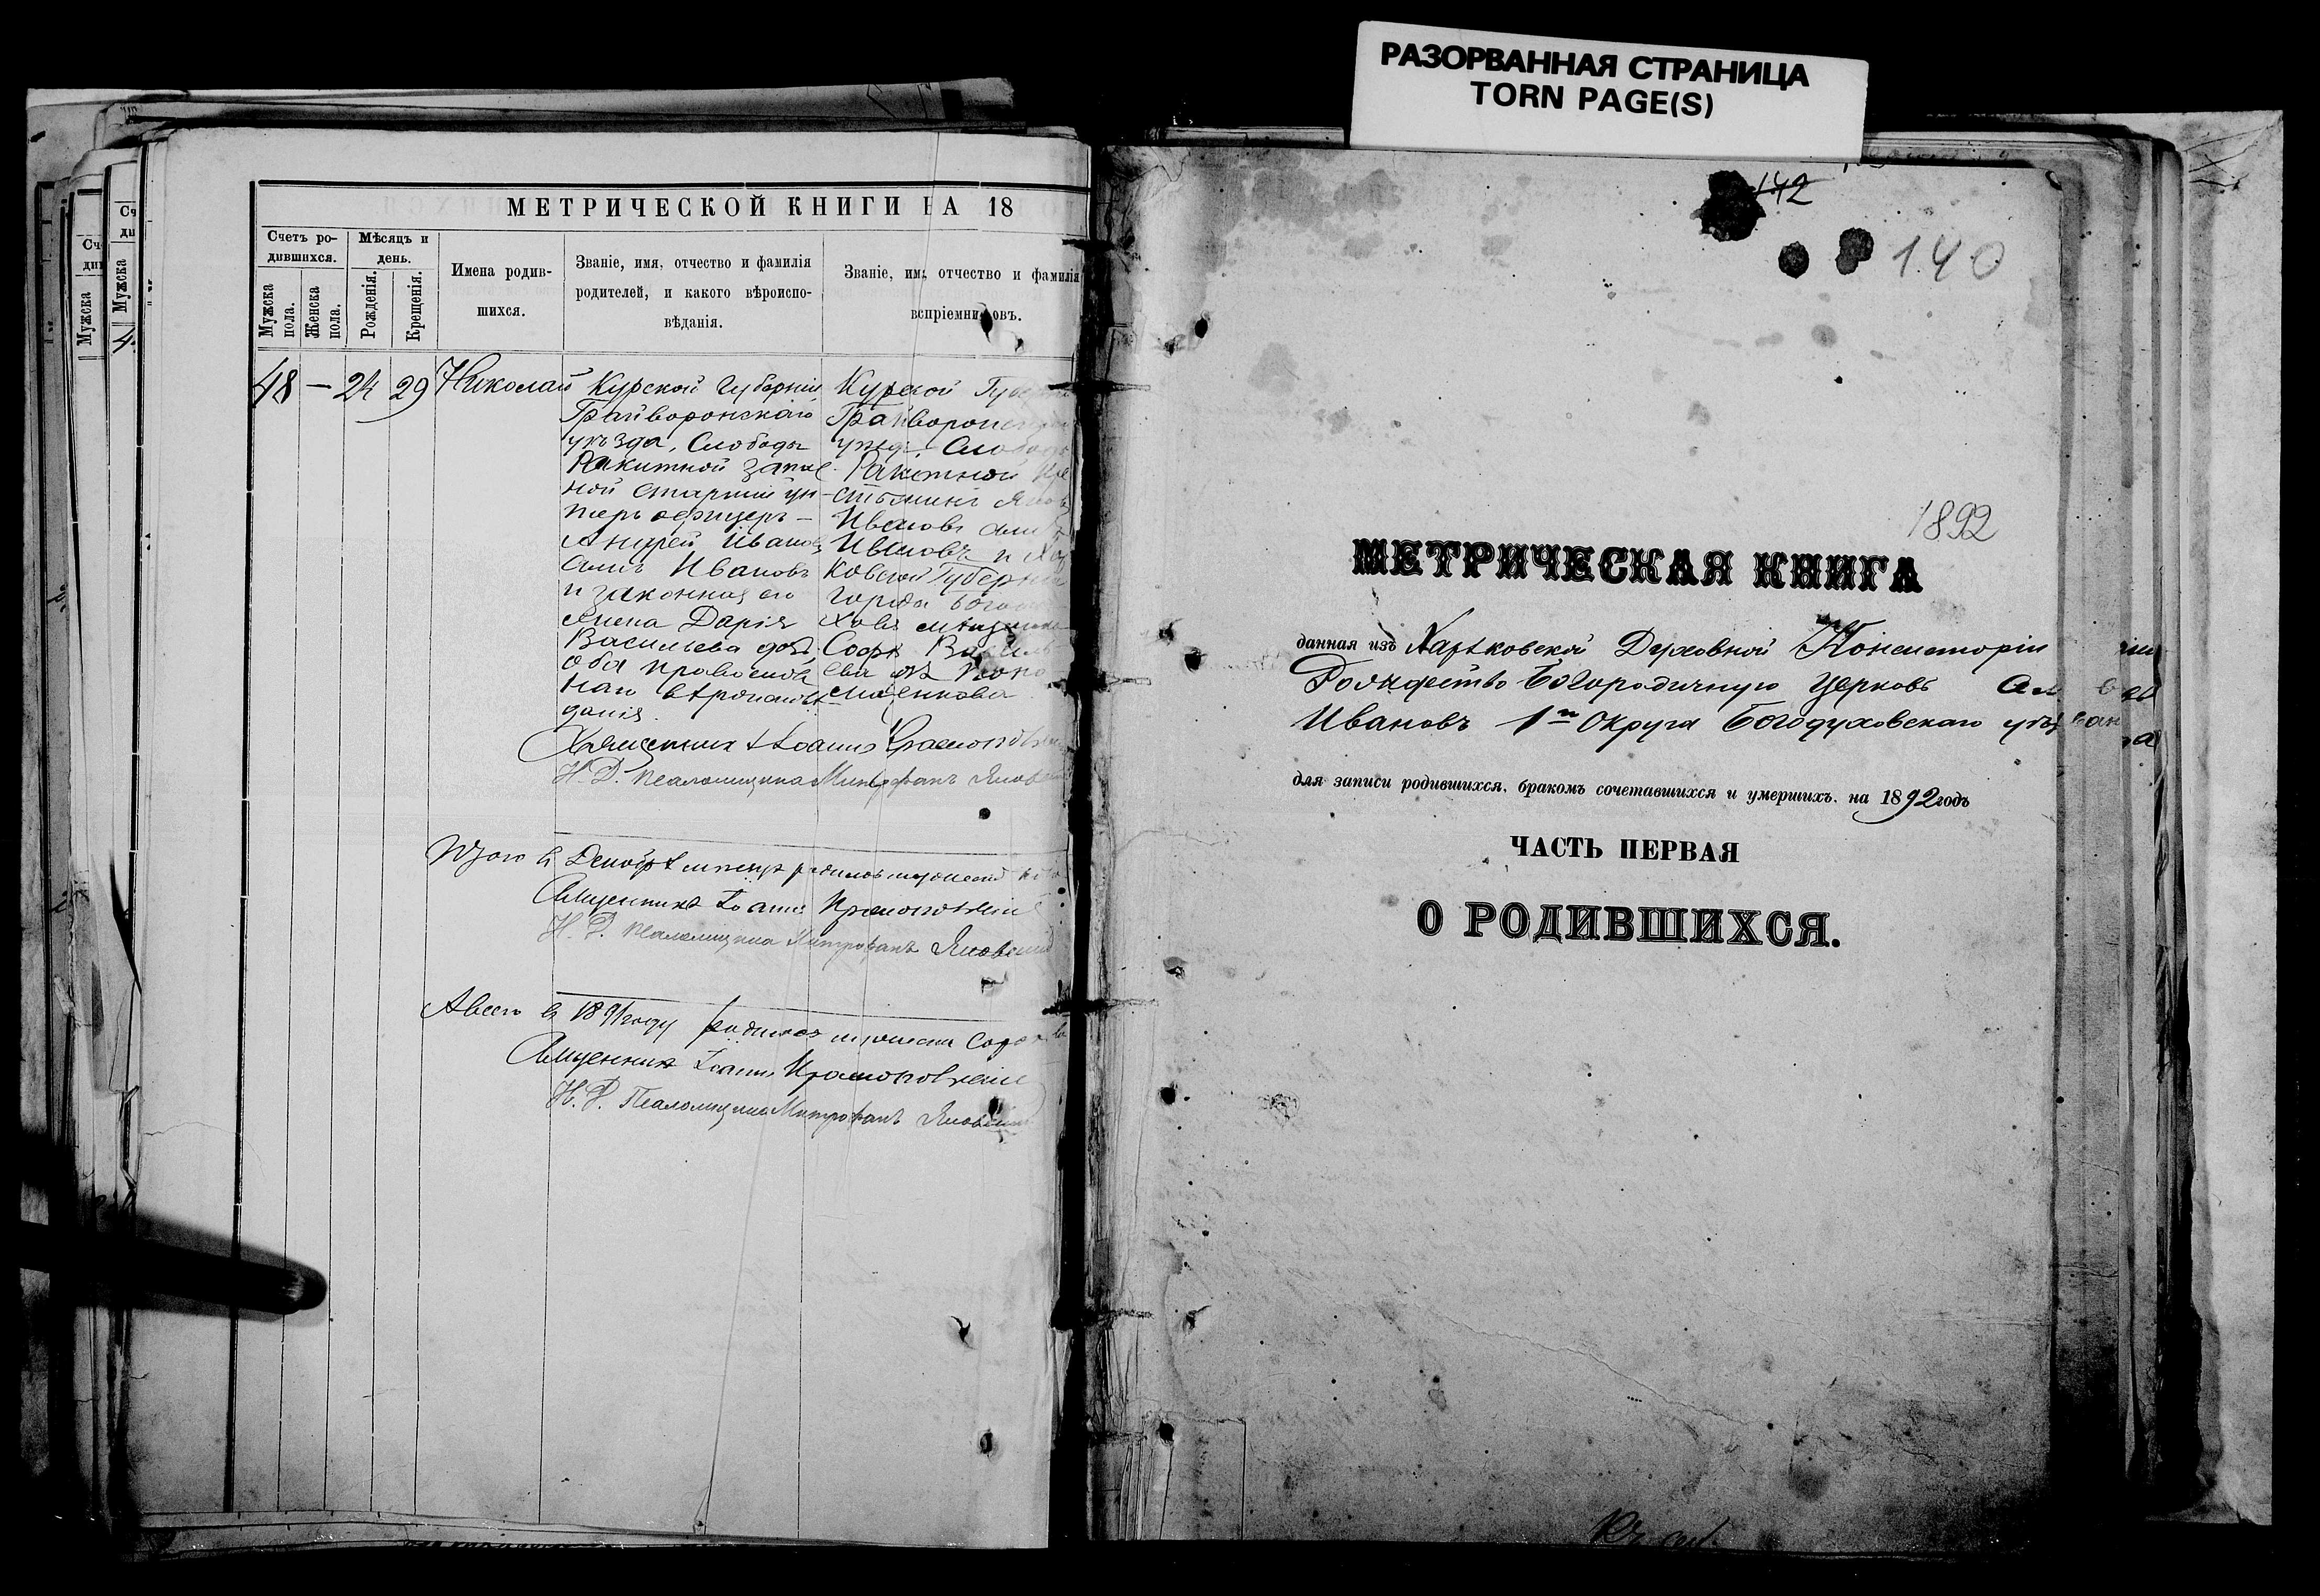 РАЗОРВАННАЯ СТРАНИЦА
TORN PAGE(S)
МЕТРИЧЕСКОЙ КНИГИ НА 18
Счетъ ро-
дившихся.
Мѣсяцъ и
день.
Мужска
пола.
Женска
пола.
Рожденія.
Крещенія.
Имена родив-
шихся.
Званіе, имя, отчество и фамилія
родителей, и какого вѣроиспо-
вѣданія.
Званіе, имя, отчество и фамилія
воспріемниковъ.
48 — 24 29 Николай
Курской Губерніи
Грайворонскаго
уѣзда, Слободы
Ракитной запас
ной старшій ун
теръ офицеръ —
Андрей Ивановъ
сынъ Ивановъ
и законная его
жена Дарія
Васильева
оба православ
наго вѣроисповѣ
данія.
Курской
Грайворонс
Слобод
Ракитной Кре
стьянинъ Яков
Ивановъ сынъ
Ивановъ и Хар
ковской Губерніи
города Богоду
хова мѣщанка
Софія Василь
ева
Священникъ Іоаннъ
И. Д. Псаломщика Митрофанъ Яновскій
Итого в Декабрѣ мѣсяцѣ родилось мужеска
Священникъ Іоаннъ
И. Д. Псаломщика Митрофанъ Яновскій
А всего в 1891 году родилось мужеска Сорок
Священникъ Іоаннъ
И. Д. Псаломщика Митрофанъ Яновскій
142
140
1892
МЕТРИЧЕСКАЯ КНИГА
данная изъ Харьковской Духовной Консисторіи
Рождество Богородичную Церковь
Ивановъ 1го Округа Богодуховскаго уѣз
для записи родившихся, бракомъ сочетавшихся и умершихъ, на 1892 годъ
ЧАСТЬ ПЕРВАЯ
О РОДИВШИХСЯ.